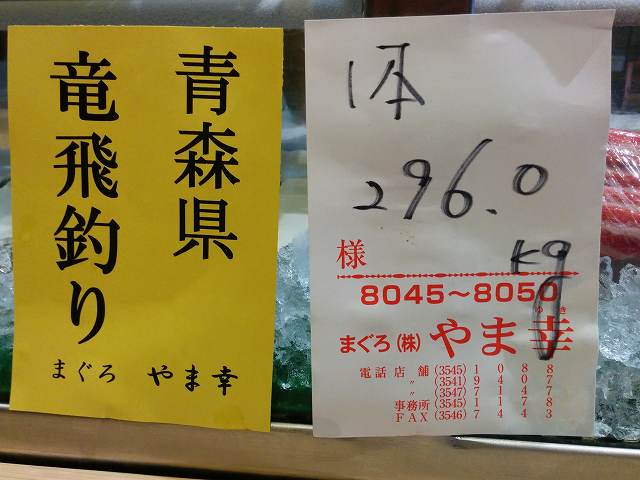 青森県
竜飛釣り
まぐろ やま幸
1本
296.0
kg
様
8045~8050
ゆき
まぐろ(株)やま幸
電話店舗(3545)1088
〃(3541)9407
〃(3547)7147
事務所(3545)1178
FAX(3546)7443